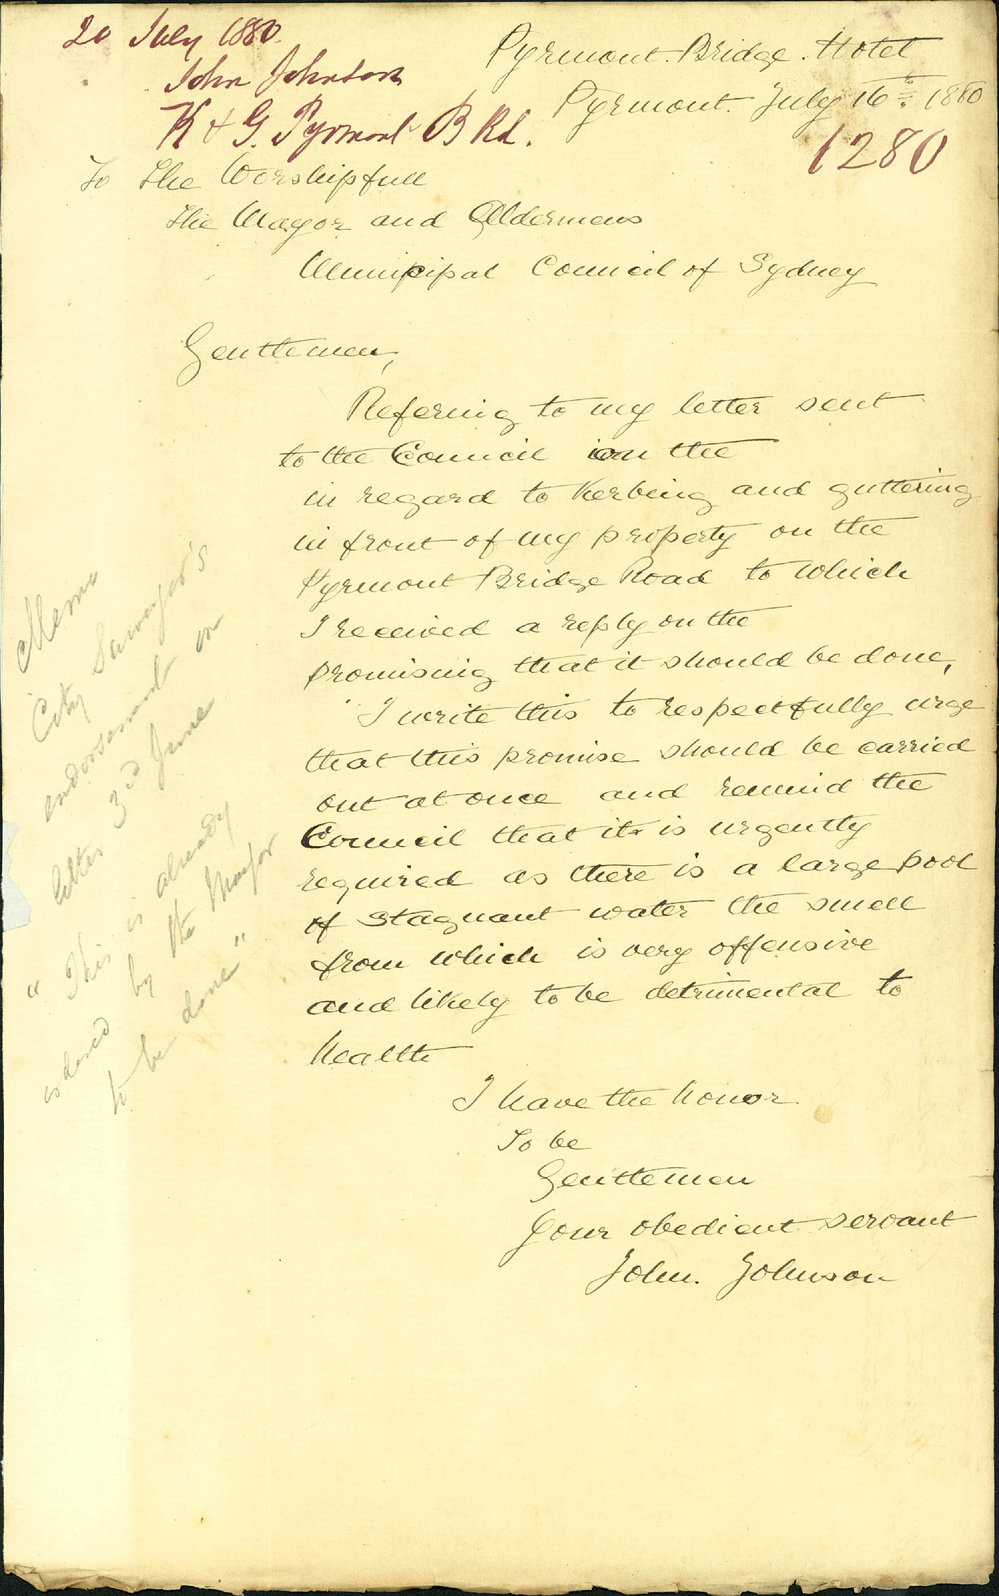 20 July 1880.
John Johnson
K & G. Pyrmont B Rd.
1280
Pyrmont. Bridge. Hotel
Pyrmont July 16th 1880
To The Worshipfull
The Mayor and Aldermens
Municipal Council of Sydney
Gentlemen,
Refering to my letter sent
to the Council on the
in regard to Kerbeing and guttering
in front of my property on the
Pyrmont Bridge Road to which
I received a reply on the
promising that it should be done,
I write this to respectfully urge
that this promise should be carried
out at once and remind the
Council that it is urgently
required as there is a large pool
of stagnant water the smell
from which is very offensive
and likely to be detrimental to
health
I have the honor
To be
Gentlemen
Your obedient servant
John. Johnson
Memo
City Surveyor's
endorsement on
letter 3rd June
"This is already
ordered by the Mayor
to be done"